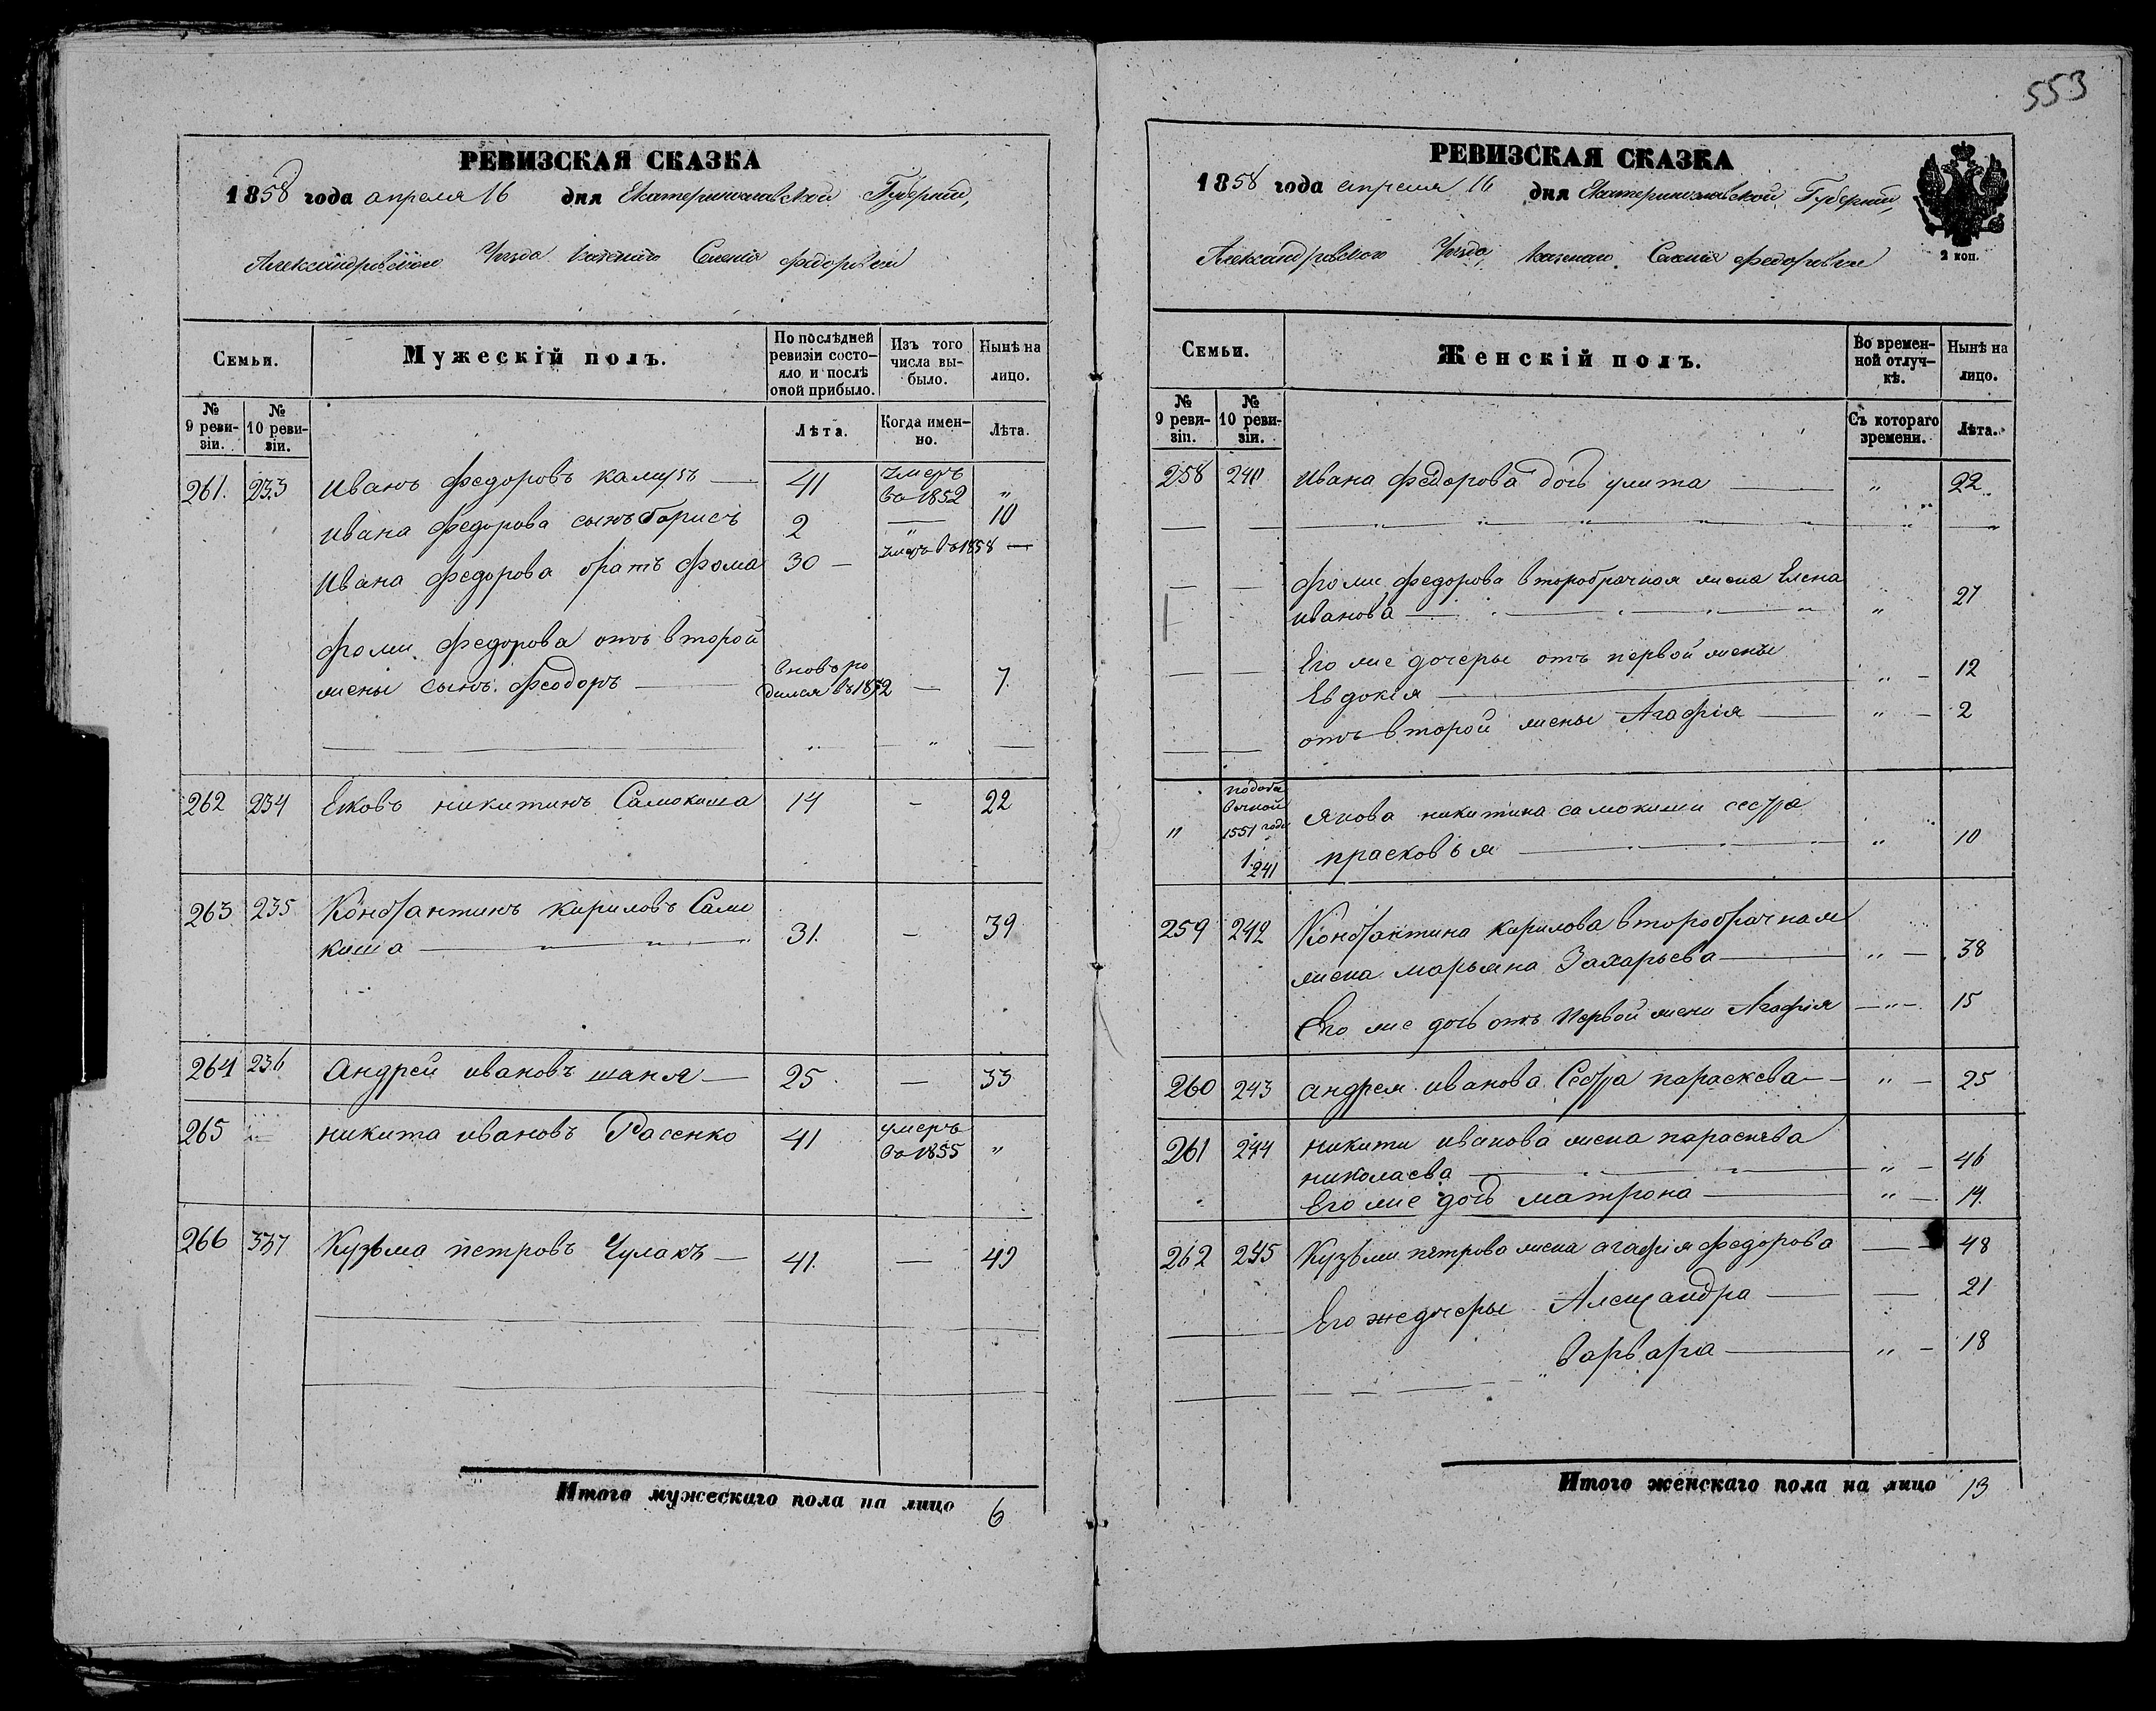 РЕВИЗСКАЯ СКАЗКА
1858 года апреля 16 дня Екатеринославской Губерніи,
Александровскаго Уезда Казеннаго Селенія Федоровки
Семьи.
Мужескій полъ.
По послѣдней ревизіи состо-
яло и послѣ оной прибыло.
Изъ того числа вы-
было.
Нынѣ на лицо.
№ 9 реви-
зіи.
№ 10 реви-
зіи.
Лѣта.
Когда имен-
но.
Лѣта.
261. 233 Иванъ Федоровъ 41 умеръ въ 1852 „
Ивана Федорова сынъ Борисъ 2 — „ 10
Ивана Федорова братъ Фома 30 — умеръ въ 1858 —
Фоми Федорова отъ второй
жены сынъ Феодоръ — вновь ро
дился въ 1852 — 7
262 234 Яковъ никитинъ Самокиша 14 - 22
263 235 Константинъ Кириловъ Сами
киша — 31. - 39
264 236 Андрей ивановъ шаня — 25 — 33
265 — никита ивановъ Расенко 41 умеръ въ 1855 „
266 337 Кузьма петровъ Чулакъ — 41. — 49
Итого мужескаго пола на лицо 6
553
РЕВИЗСКАЯ СКАЗКА
1858 года апреля 16 дня Екатеринославской Губерніи,
2 коп.
Александровского Уезда Казеннаго Селенія Федоровки
Семьи.
Женскій полъ.
Во времен-
ной отлуч-
кѣ.
Нынѣ на лицо.
№ 9 реви-
зіи.
№ 10 реви-
зіи.
Съ котораго времени.
Лѣта.
258 240 Ивана Федорова дочь улита — „ 22
Фоми Федорова второбрачная жена Елена
иванова — „ 27
Его же дочеры отъ первой жены
Евдокія — „ 12
отъ второй жены Агафія — „ 2
„ 1551 года
241
Якова никитина самокиши сестра
прасковья — „ 10
259 242 Константина Кирилова второбрачная
жена марьяна Захарьева — „ 38
Его же дочь отъ первой жени Агафія — „ 15
260 243 Андрея иванова Сестра параскева — „ 25
261 244 Никити иванова жена параскева
николаева — „ 46
Его же дочь матрона — „ 14.
262 245 Кузьми петрова жена агафія федорова — 48
Его же дочеры Александра — 21
варвара — „ 18
Итого женскаго пола на лицо 13